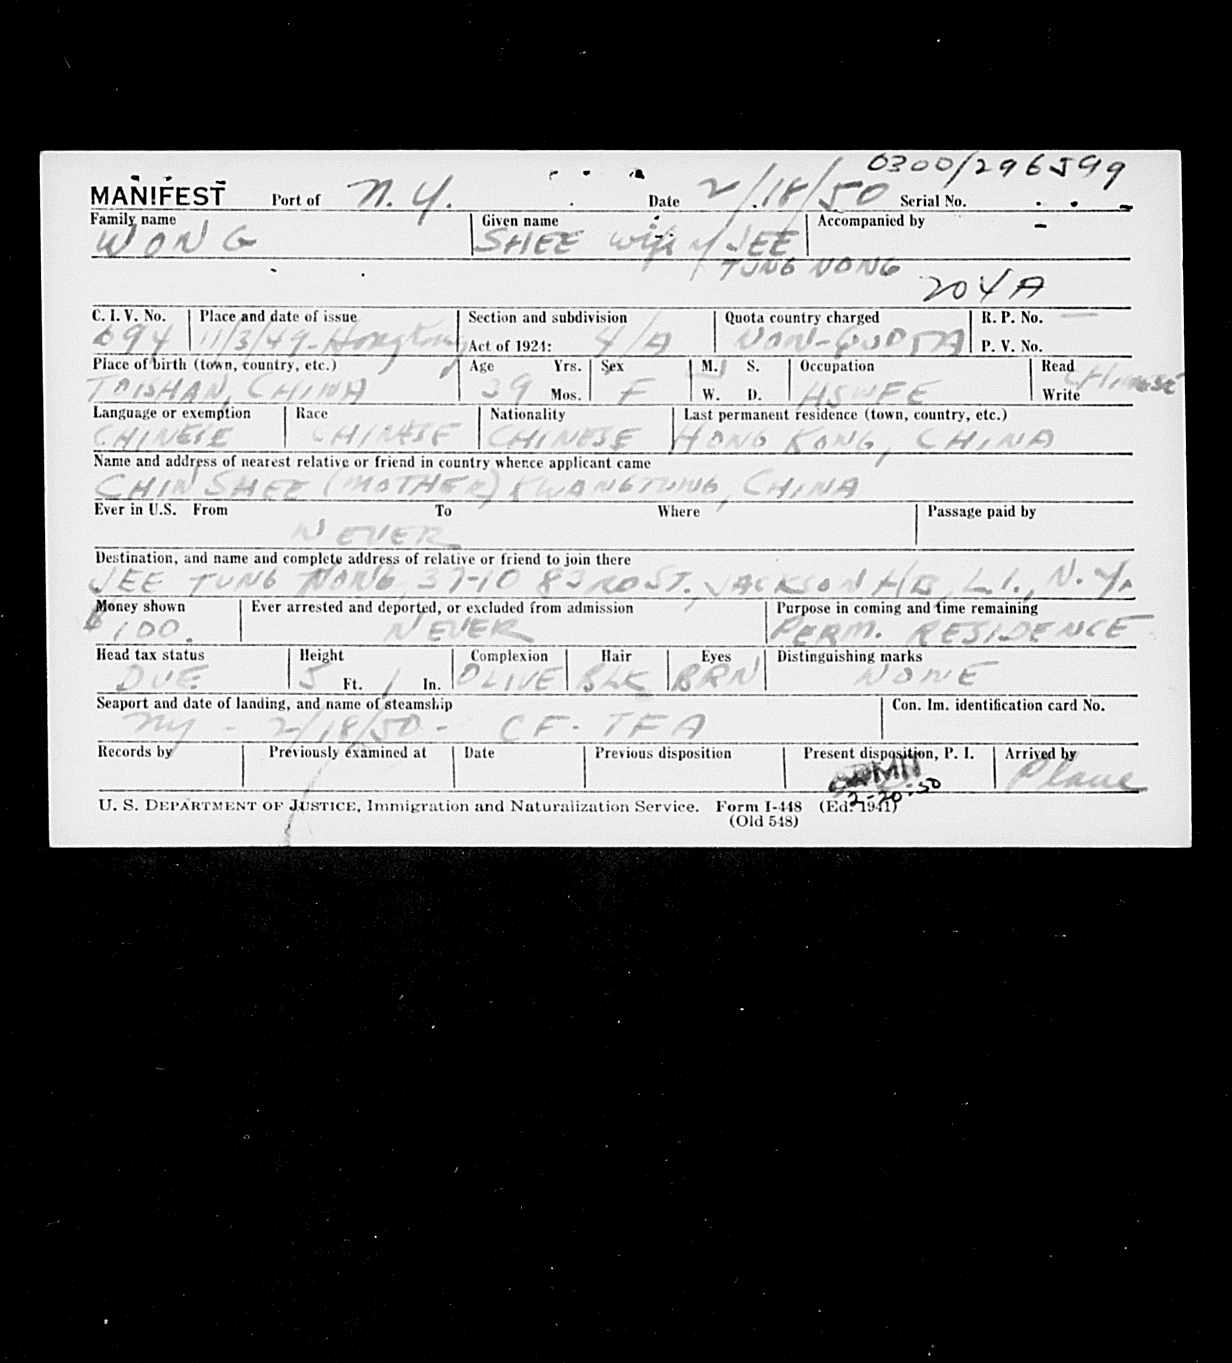 0300/296599
MANIFEST Port of N.Y. Date 2/18/50 Serial No.
Family name Given name Accompanied by
WONG SHEE wife of JEE
TUNG NONG
204A
C. I. V. No. Place and date of issue Section and subdivision Quota country charged R. P. No.
694 11/3/49-Hongkong Act of 1924: 4/A NON-QUOTA P. V. No.
Place of birth (town, country, etc.) Age Yrs. Sex M. S. Occupation Read
TAISHAN, CHINA 39 Mos. F W. D. HSWFE Write CHINESE
Language or exemption Race Nationality Last permanent residence (town, country, etc.)
CHINESE CHINESE CHINESE HONG KONG, CHINA
Name and address of nearest relative or friend in country whence applicant came
CHIN SHEE (MOTHER) KWANGTUNG, CHINA
Ever in U.S. From To Where Passage paid by
NEVER
Destination, and name and complete address of relative or friend to join there
JEE TUNG NONG, 37-10 83RD ST., JACKSON , L.I., N.Y.
Money shown Ever arrested and deported, or excluded from admission Purpose in coming and time remaining
$100. NEVER PERM. RESIDENCE
Head tax status Height Complexion Hair Eyes Distinguishing marks
DUE 5 Ft. 1 In. OLIVE BLK BRN NONE
Seaport and date of landing, and name of steamship Con. Im. identification card No.
NY - 2/18/50 - CF-TFA
Records by Previously examined at Date Previous disposition Present disposition, P. I. Arrived by
ADMIT Plane
2-20-50
U. S. DEPARTMENT OF JUSTICE, Immigration and Naturalization Service. Form I-448 (Ed. 1941)
(Old 548)